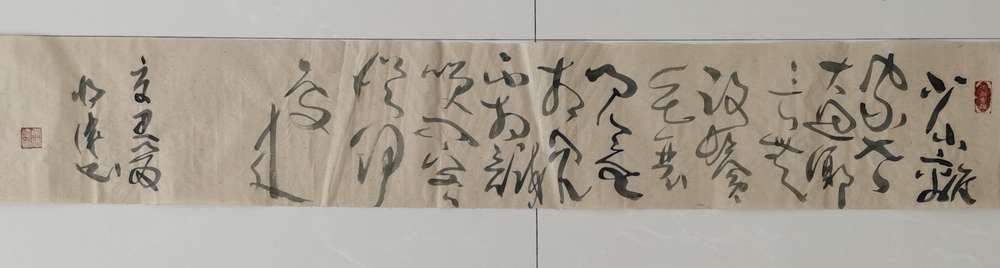 少小離
家老
大回鄉
音無
改鬢
毛衰
兒童
相見
不相識
笑問客
從何
處來
辛丑夏